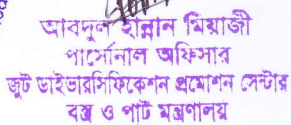 আবদুল হান্নান মিয়াজী
পার্সোনাল অফিসার
জুট ডাইভারসিফিকেশন প্রমোশন সেন্টার
বস্ত্র ও পাট মন্ত্রণালয়